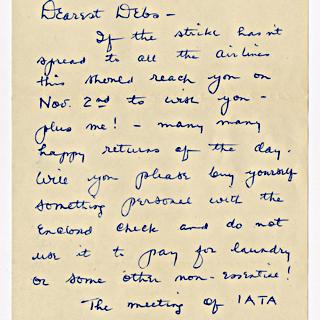 Dearest Debs -
If the strike hasn't
spread to all the airlines
this should reach you on
Nov. 2nd to wish you -
plus me! - many many
happy returns of the day.
Will you please buy yourself
something personal with the
enclosed check and do not
use it to pay for laundry
or some other non-essential!
The meeting of IATA